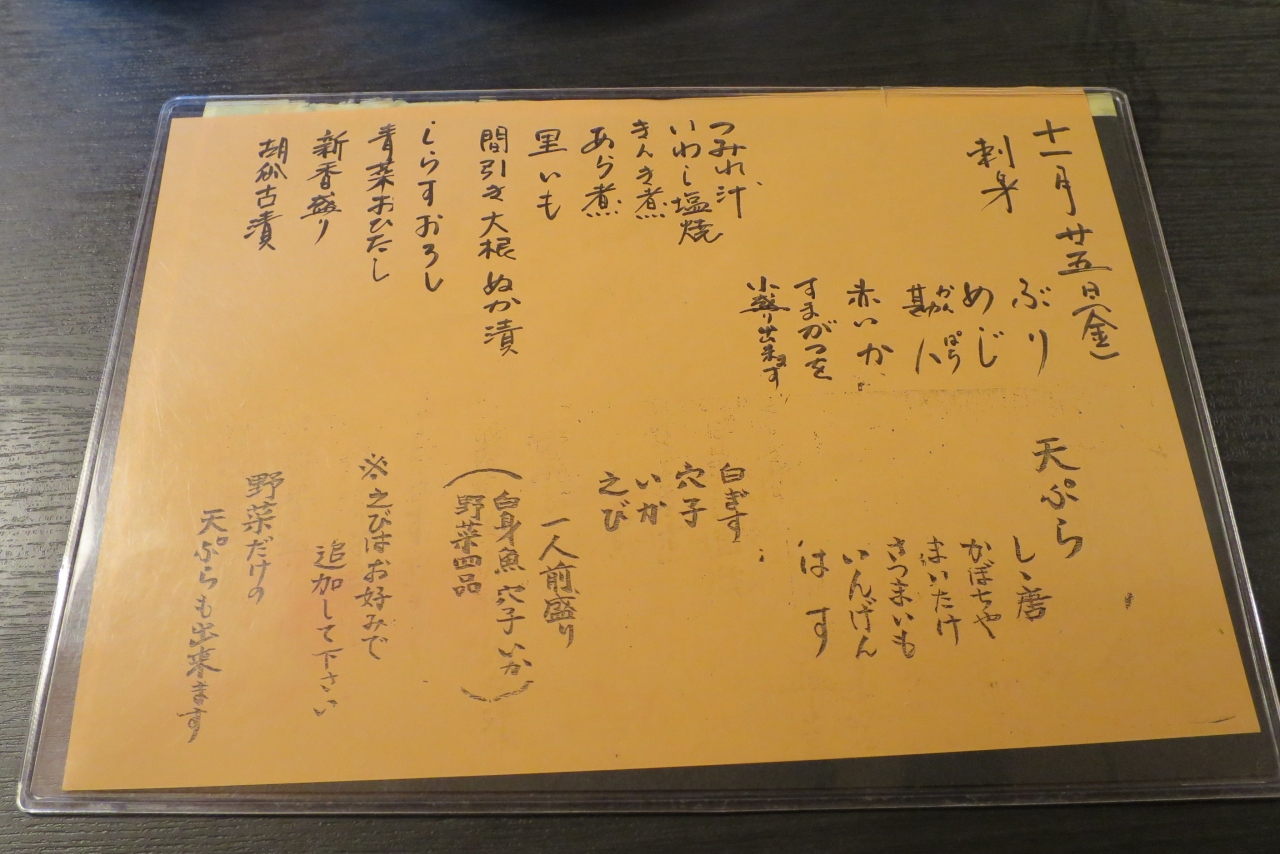 十一月廿五日(金)
刺身
ぶり
めじ
勘八
かん
ぱち
赤いか
すまがつを
小盛り出来ます
つみれ汁
いわし塩焼
きんき煮
あら煮
里いも
間引き大根ぬか漬
しらすおろし
青菜おひたし
新香盛り
胡瓜古漬
天ぷら
しゝ唐
かぼちゃ
まいたけ
さつまいも
いんげん
はす
白ぎす
穴子
いか
えび
一人前盛り
(白身魚 穴子 いか
野菜四品)
※えびはお好みで
追加して下さい
野菜だけの
天ぷらも出来ます